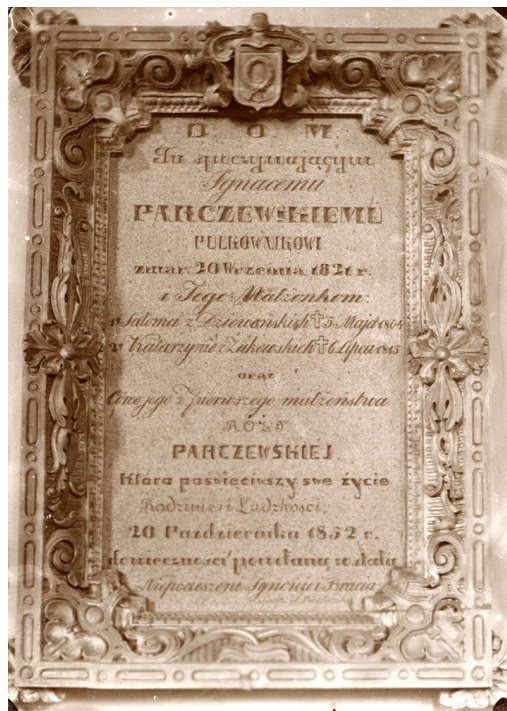 D O M
Tu spoczywającym
Ignacemu
PARCZEWSKIEMU
PUŁKOWNIKOWI
zmar: 20 Wrzesnia 1821 r.
i Jego Małżonkom:
Saloma z Dziewońskich † 5 Maja 1804
Katarzynie z Żakowskich † 6 Lipca 1815
oraz
Córce jego z pierwszego małżeństwa
RÓŻY
PARCZEWSKIEJ
Która poświęciwszy swe życie
Rodzinie i Ludzkości,
20 Października 1852 r.
do wieczności powołaną została
Niepocieszeni Synowie i Bracia